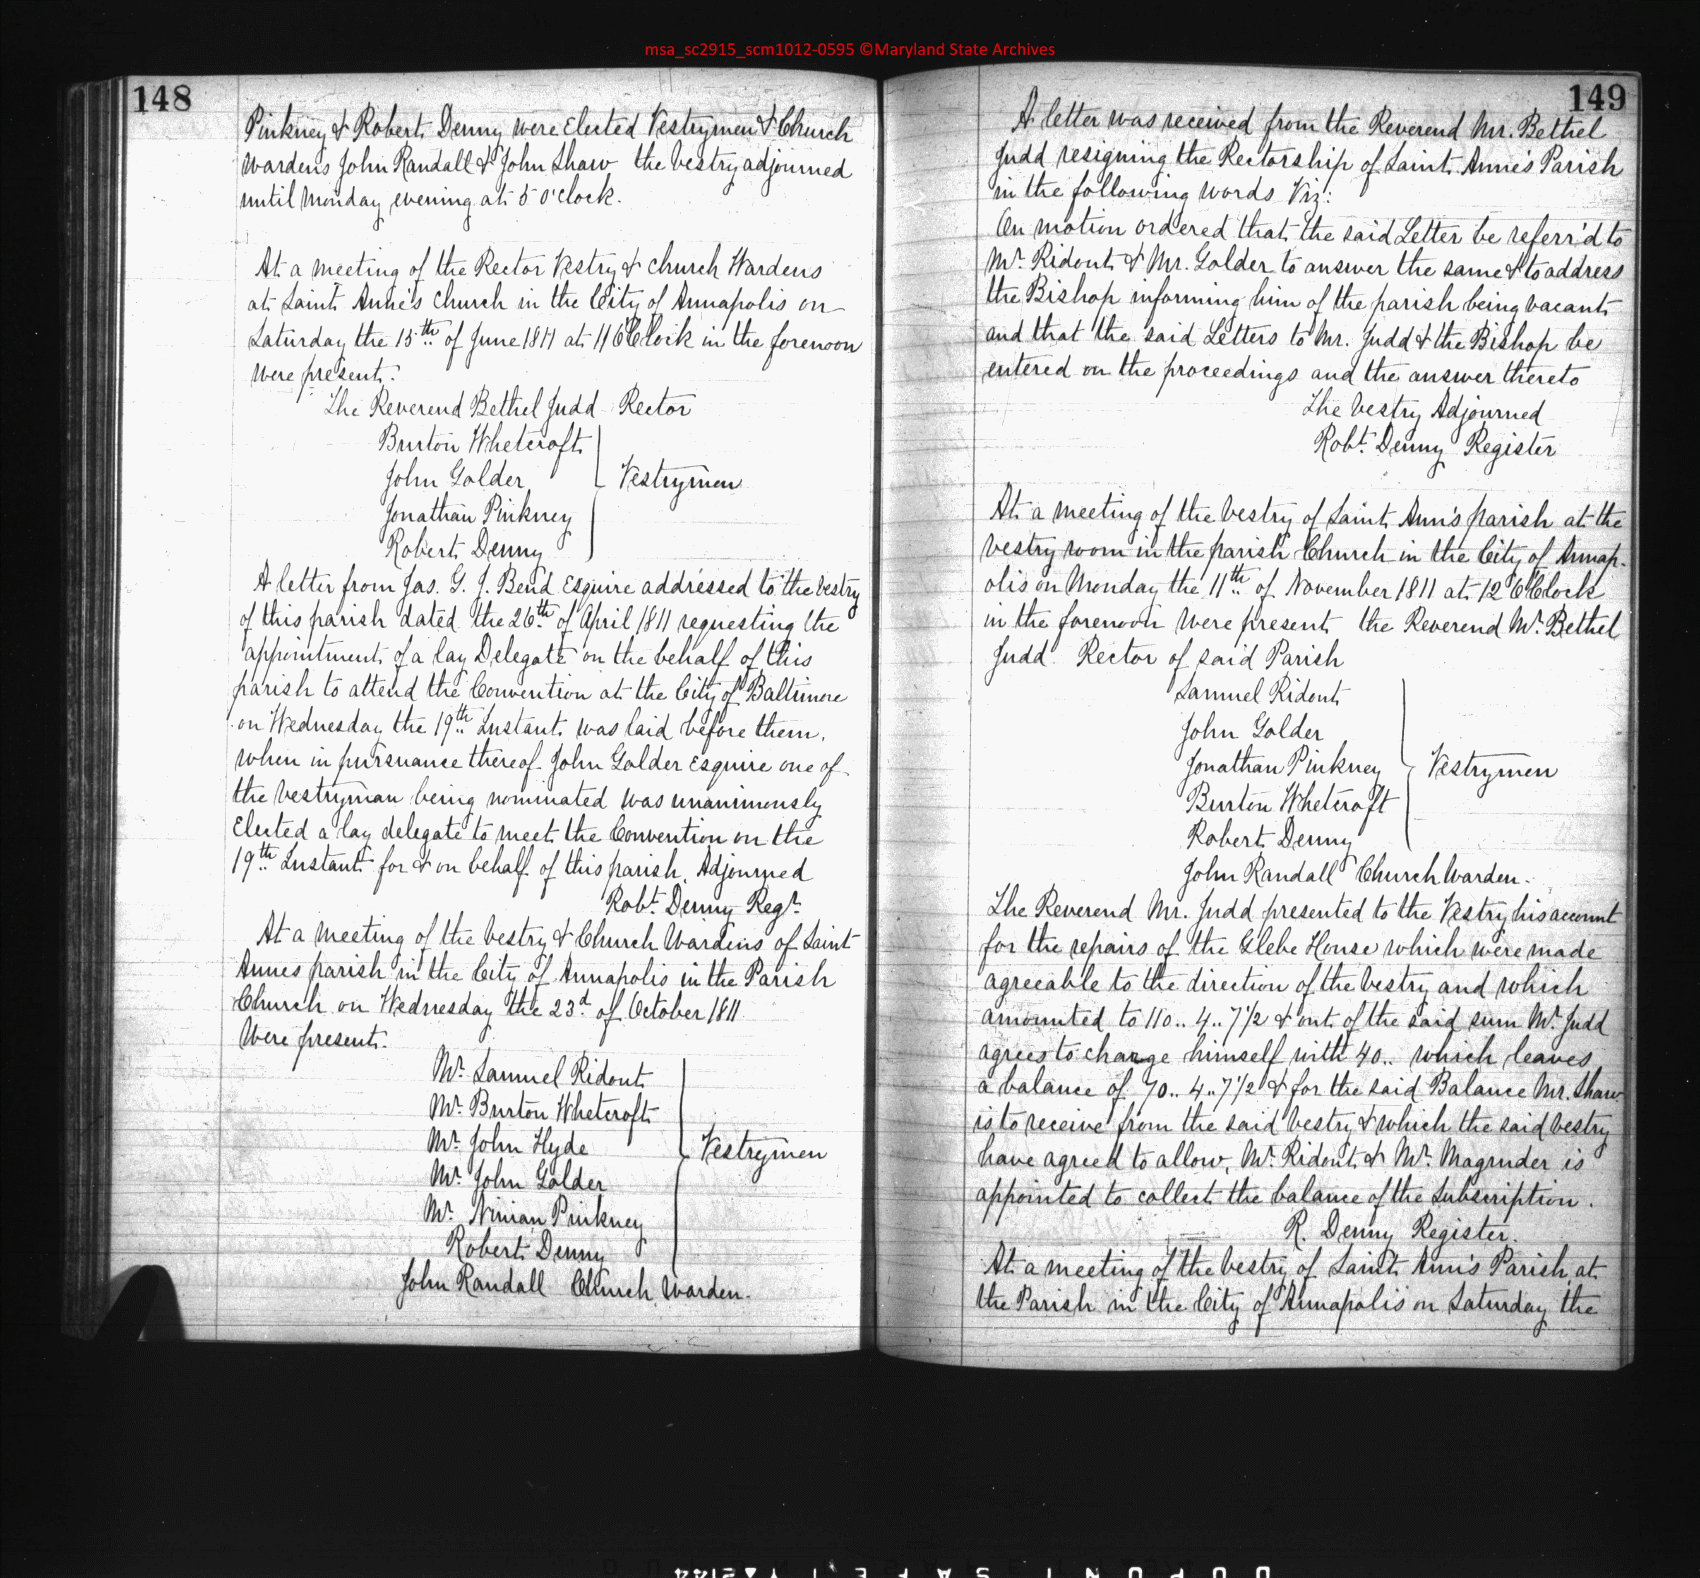 msa_sc2915_scm1012-0595 ©Maryland State Archives
148
Pinkney & Robert Denny were Elected Vestrymen & Church
Wardens John Randall & John Shaw the Vestry adjourned
until Monday evening at 5 o'clock.
At a meeting of the Rector Vestry & Church Wardens
at Saint Anne's Church in the City of Annapolis on
Saturday the 15th of June 1811 at 11 OClock in the forenoon
were present.
The Reverend Bethel Judd Rector
Burton Whetcroft
John Golder
Vestrymen
Jonathan Pinkney
Robert Denny
A letter from Jas. G. J. Bend Esquire addressed to the vestry
of this parish dated the 26th of April 1811 requesting the
appointment of a lay Delegate on the behalf of this
parish to attend the Convention at the City of Baltimore
on Wednesday the 19th Instant was laid before them,
when in pursuance thereof John Golder Esquire one of
the vestryman being nominated was unanimously
Elected a lay delegate to meet the Convention on the
19th Instant for & on behalf of this parish. Adjourned
Robt. Denny Regr.
At a meeting of the Vestry & Church Wardens of Saint
Annes parish in the City of Annapolis in the Parish
Church on Wednesday the 23d of October 1811
Were present.
Mr. Samuel Ridout
Mr. Burton Whetcroft
Mr. John Hyde
Vestrymen
Mr. John Golder
Mr. Ninian Pinkney
Robert Denny
John Randall Church Warden.
149
A letter was received from the Reverend Mr. Bethel
Judd resigning the Rectorship of Saint Anne's Parish
in the following words Viz:
On motion ordered that the said Letter be referr'd to
Mr. Ridout & Mr. Golder to answer the same & to address
the Bishop informing him of the parish being vacant
and that the said Letters to Mr. Judd & the Bishop be
entered on the proceedings and the answer thereto
The Vestry Adjourned
Robt. Denny Register
At a meeting of the Vestry of Saint Ann's parish at the
vestry room in the parish Church in the City of Annap-
olis on Monday the 11th of November 1811 at 12 O'Clock
in the forenoon were present the Reverend Mr. Bethel
Judd Rector of said Parish
Samuel Ridout
John Golder
Jonathan Pinkney
Vestrymen
Burton Whetcroft
Robert Denny
John Randall Church Warden.
The Reverend Mr. Judd presented to the Vestry his account
for the repairs of the Glebe House which were made
agreeable to the direction of the Vestry and which
amounted to 110.. 4.. 7 1/2 & out of the said sum Mr. Judd
agrees to charge himself with 40.. which leaves
a balance of 70.. 4.. 7 1/2 & for the said Balance Mr. Shaw
is to receive from the said Vestry & which the said vestry
have agreed to allow, Mr. Ridout & Mr. Magruder is
appointed to collect the balance of the Subscription.
R. Denny Register.
At a meeting of the Vestry of Saint Ann's Parish at
the Parish in the City of Annapolis on Saturday the